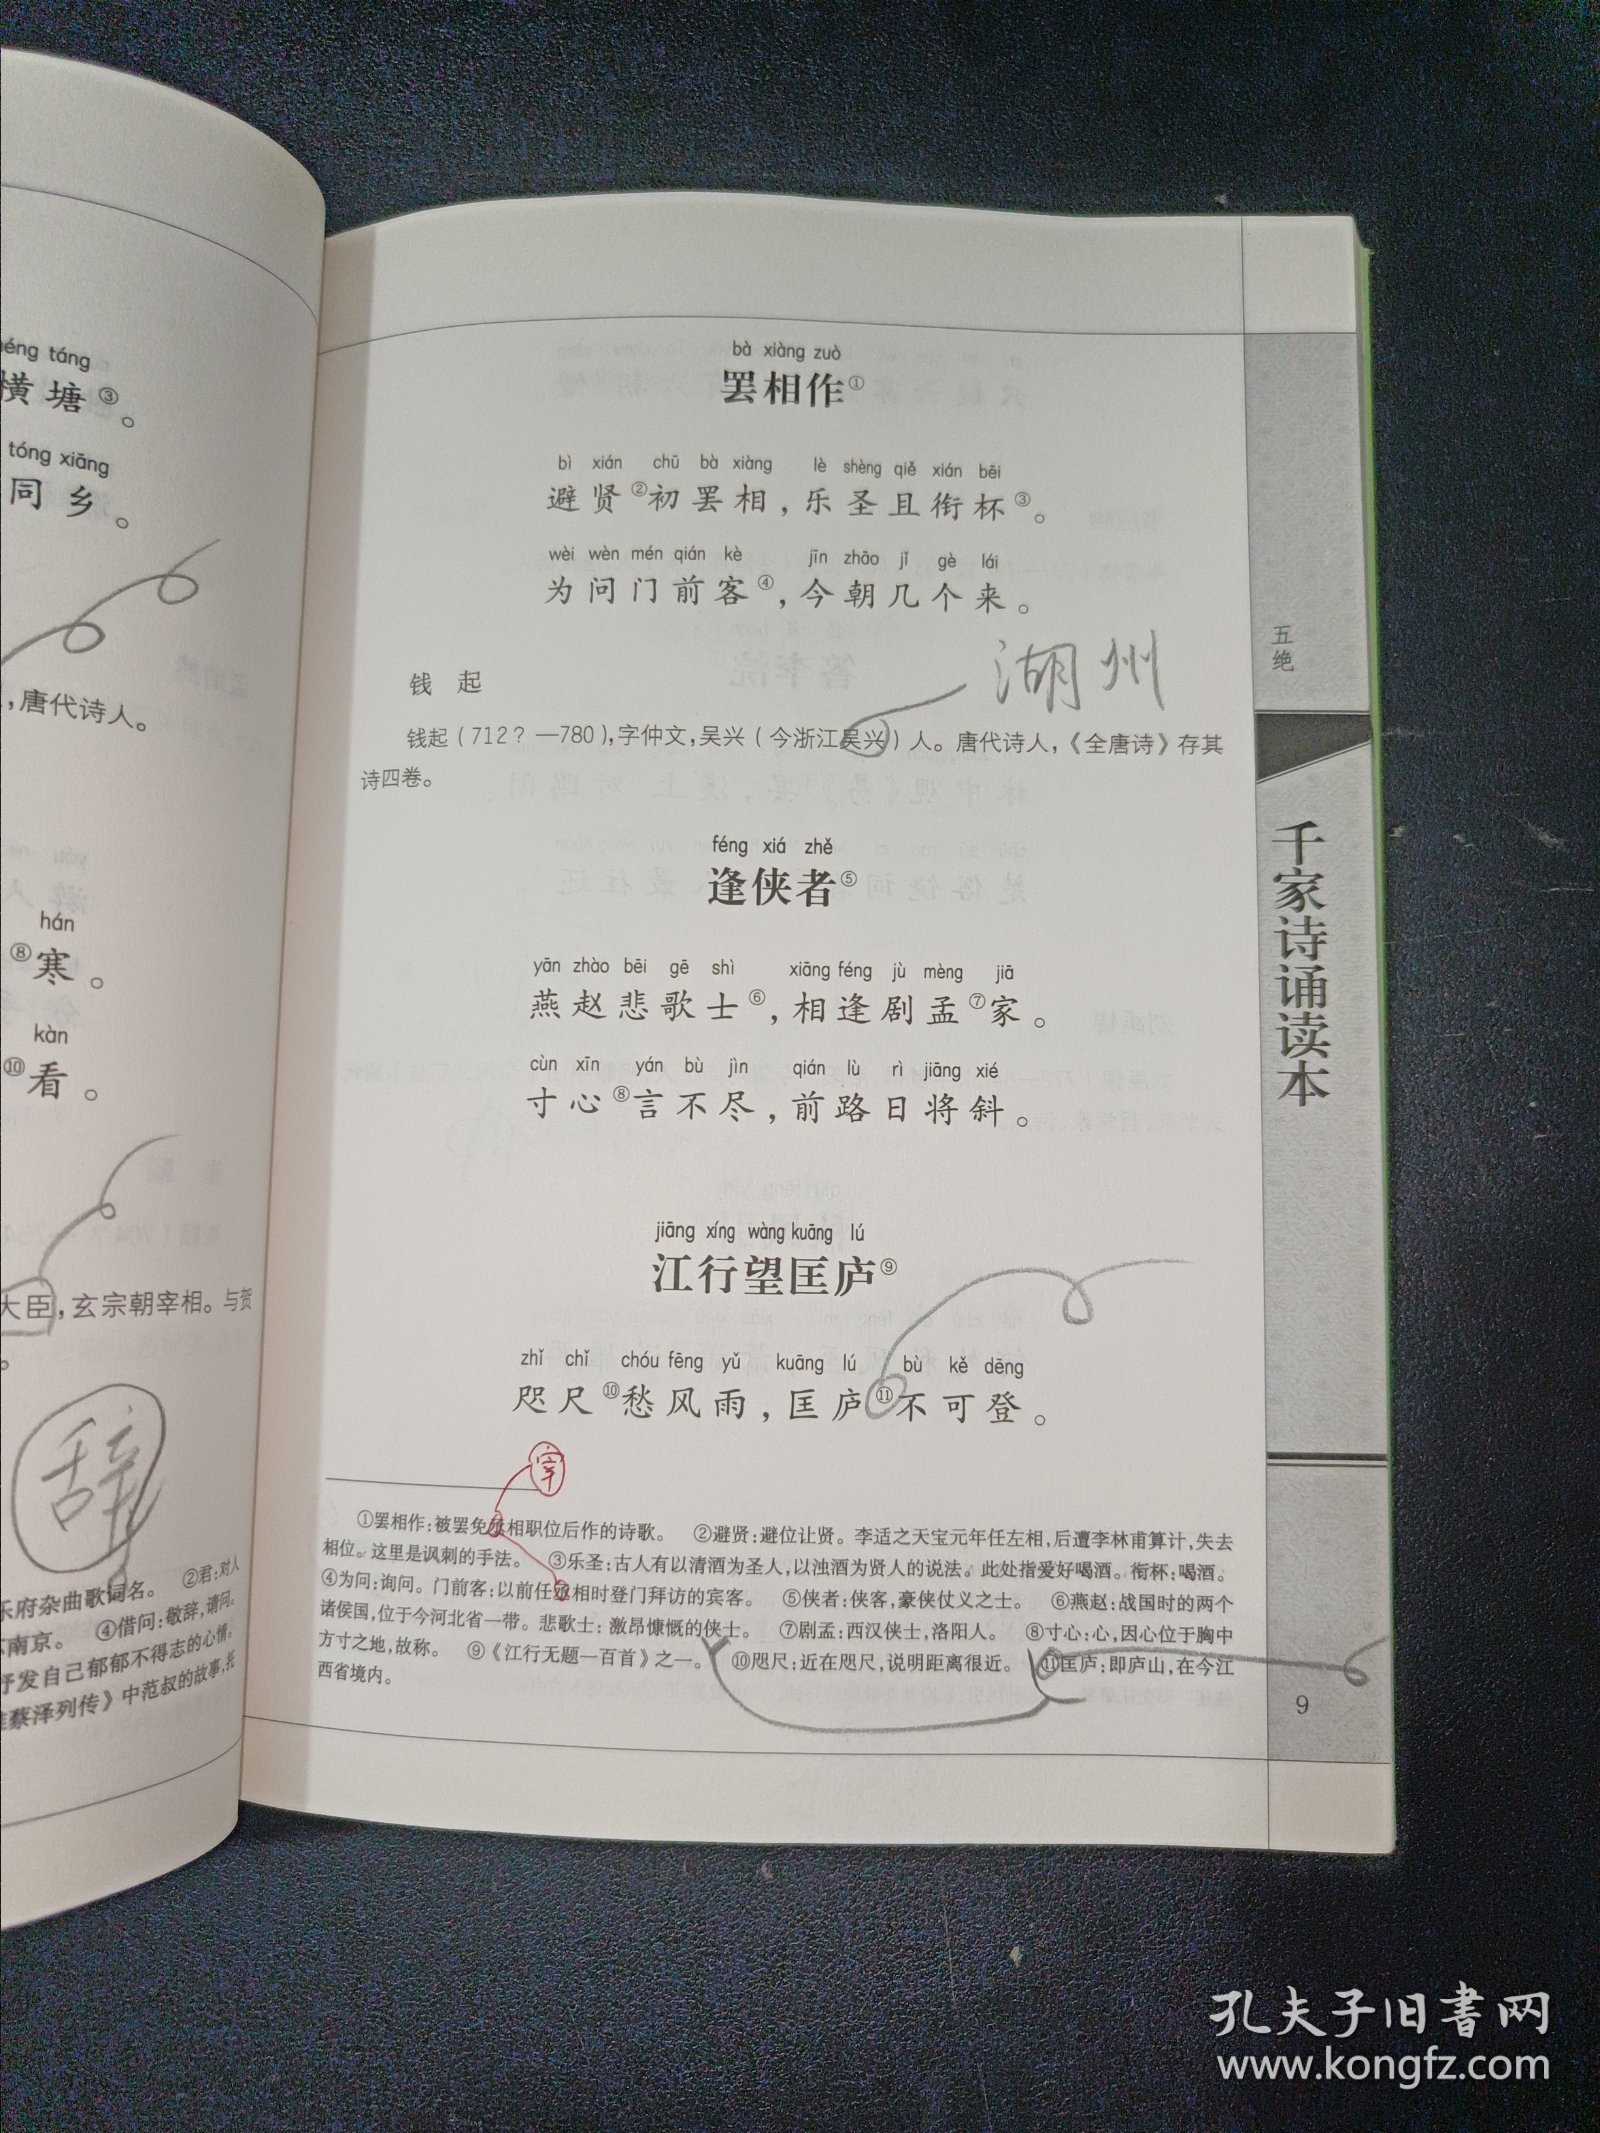 héng táng
横塘③。
tóng xiāng
同乡。
，唐代诗人。
hán
⑧寒。
kàn
⑩看。
大臣，玄宗朝宰相。与贺
。
辞
乐府杂曲歌词名。 ②君：对人
南京。 ④借问：敬辞，请问。
抒发自己郁郁不得志的心情。
蔡泽列传》中范叔的故事，托
bà xiàng zuò
罢相作①
bì xián chū bà xiàng lè shèng qiě xián bēi
避贤②初罢相，乐圣且衔杯③。
wèi wèn mén qián kè jīn zhāo jǐ gè lái
为问门前客④，今朝几个来。
湖州
钱 起
钱起（712？—780），字仲文，吴兴（今浙江吴兴）人。唐代诗人，《全唐诗》存其
诗四卷。
féng xiá zhě
逢侠者⑤
yān zhào bēi gē shì xiāng féng jù mèng jiā
燕赵悲歌士⑥，相逢剧孟⑦家。
cùn xīn yán bù jìn qián lù rì jiāng xié
寸心⑧言不尽，前路日将斜。
jiāng xíng wàng kuāng lú
江行望匡庐⑨
zhǐ chǐ chóu fēng yǔ kuāng lú bù kě dēng
咫尺⑩愁风雨，匡庐⑪不可登。
宰
①罢相作：被罢免丞相职位后作的诗歌。 ②避贤：避位让贤。李适之天宝元年任左相，后遭李林甫算计，失去
相位。这里是讽刺的手法。 ③乐圣：古人有以清酒为圣人，以浊酒为贤人的说法。此处指爱好喝酒。衔杯：喝酒。
④为问：询问。门前客：以前任丞相时登门拜访的宾客。 ⑤侠者：侠客，豪侠仗义之士。 ⑥燕赵：战国时的两个
诸侯国，位于今河北省一带。悲歌士：激昂慷慨的侠士。 ⑦剧孟：西汉侠士，洛阳人。 ⑧寸心：心，因心位于胸中
方寸之地，故称。 ⑨《江行无题一百首》之一。 ⑩咫尺：近在咫尺，说明距离很近。 ⑪匡庐：即庐山，在今江
西省境内。
五绝
千家诗诵读本
9
孔夫子旧书网
www.kongfz.com